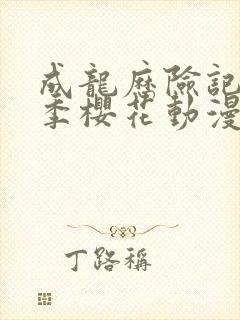 成龍歷險記
季櫻花動漫
丁路稱